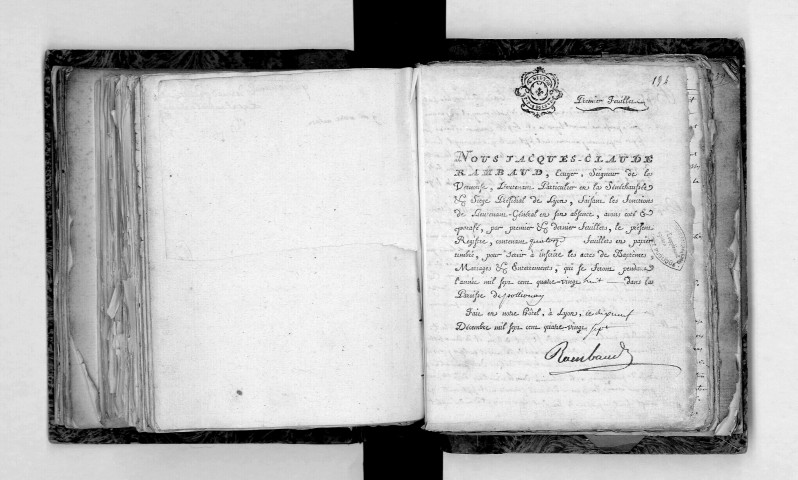 194
Premier Feuillet
NOUS JACQUES-CLAUDE
RAMBAUD, Ecuyer, Seigneur de la
Vernouse, Lieutenant Particulier en la Sénéchaussée
& Siege Présidial de Lyon, faisant les fonctions
de Lieutenant-Général en son absence, avons coté &
paraphé, par premier & dernier feuillets, le présent
Registre, contenant quatorze feuillets en papier
timbré, pour servir à inscrire les actes de Baptêmes
Mariages & Enterrements, qui se feront pendant
l'année mil sept cent quatre-vingt huit dans la
Paroisse de
Fait en notre Hôtel, à Lyon, ce dix neuf
Décembre mil sept cent quatre-vingt sept
Rambaud